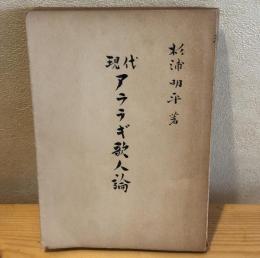 杉浦明平著
現代
アララギ歌人論